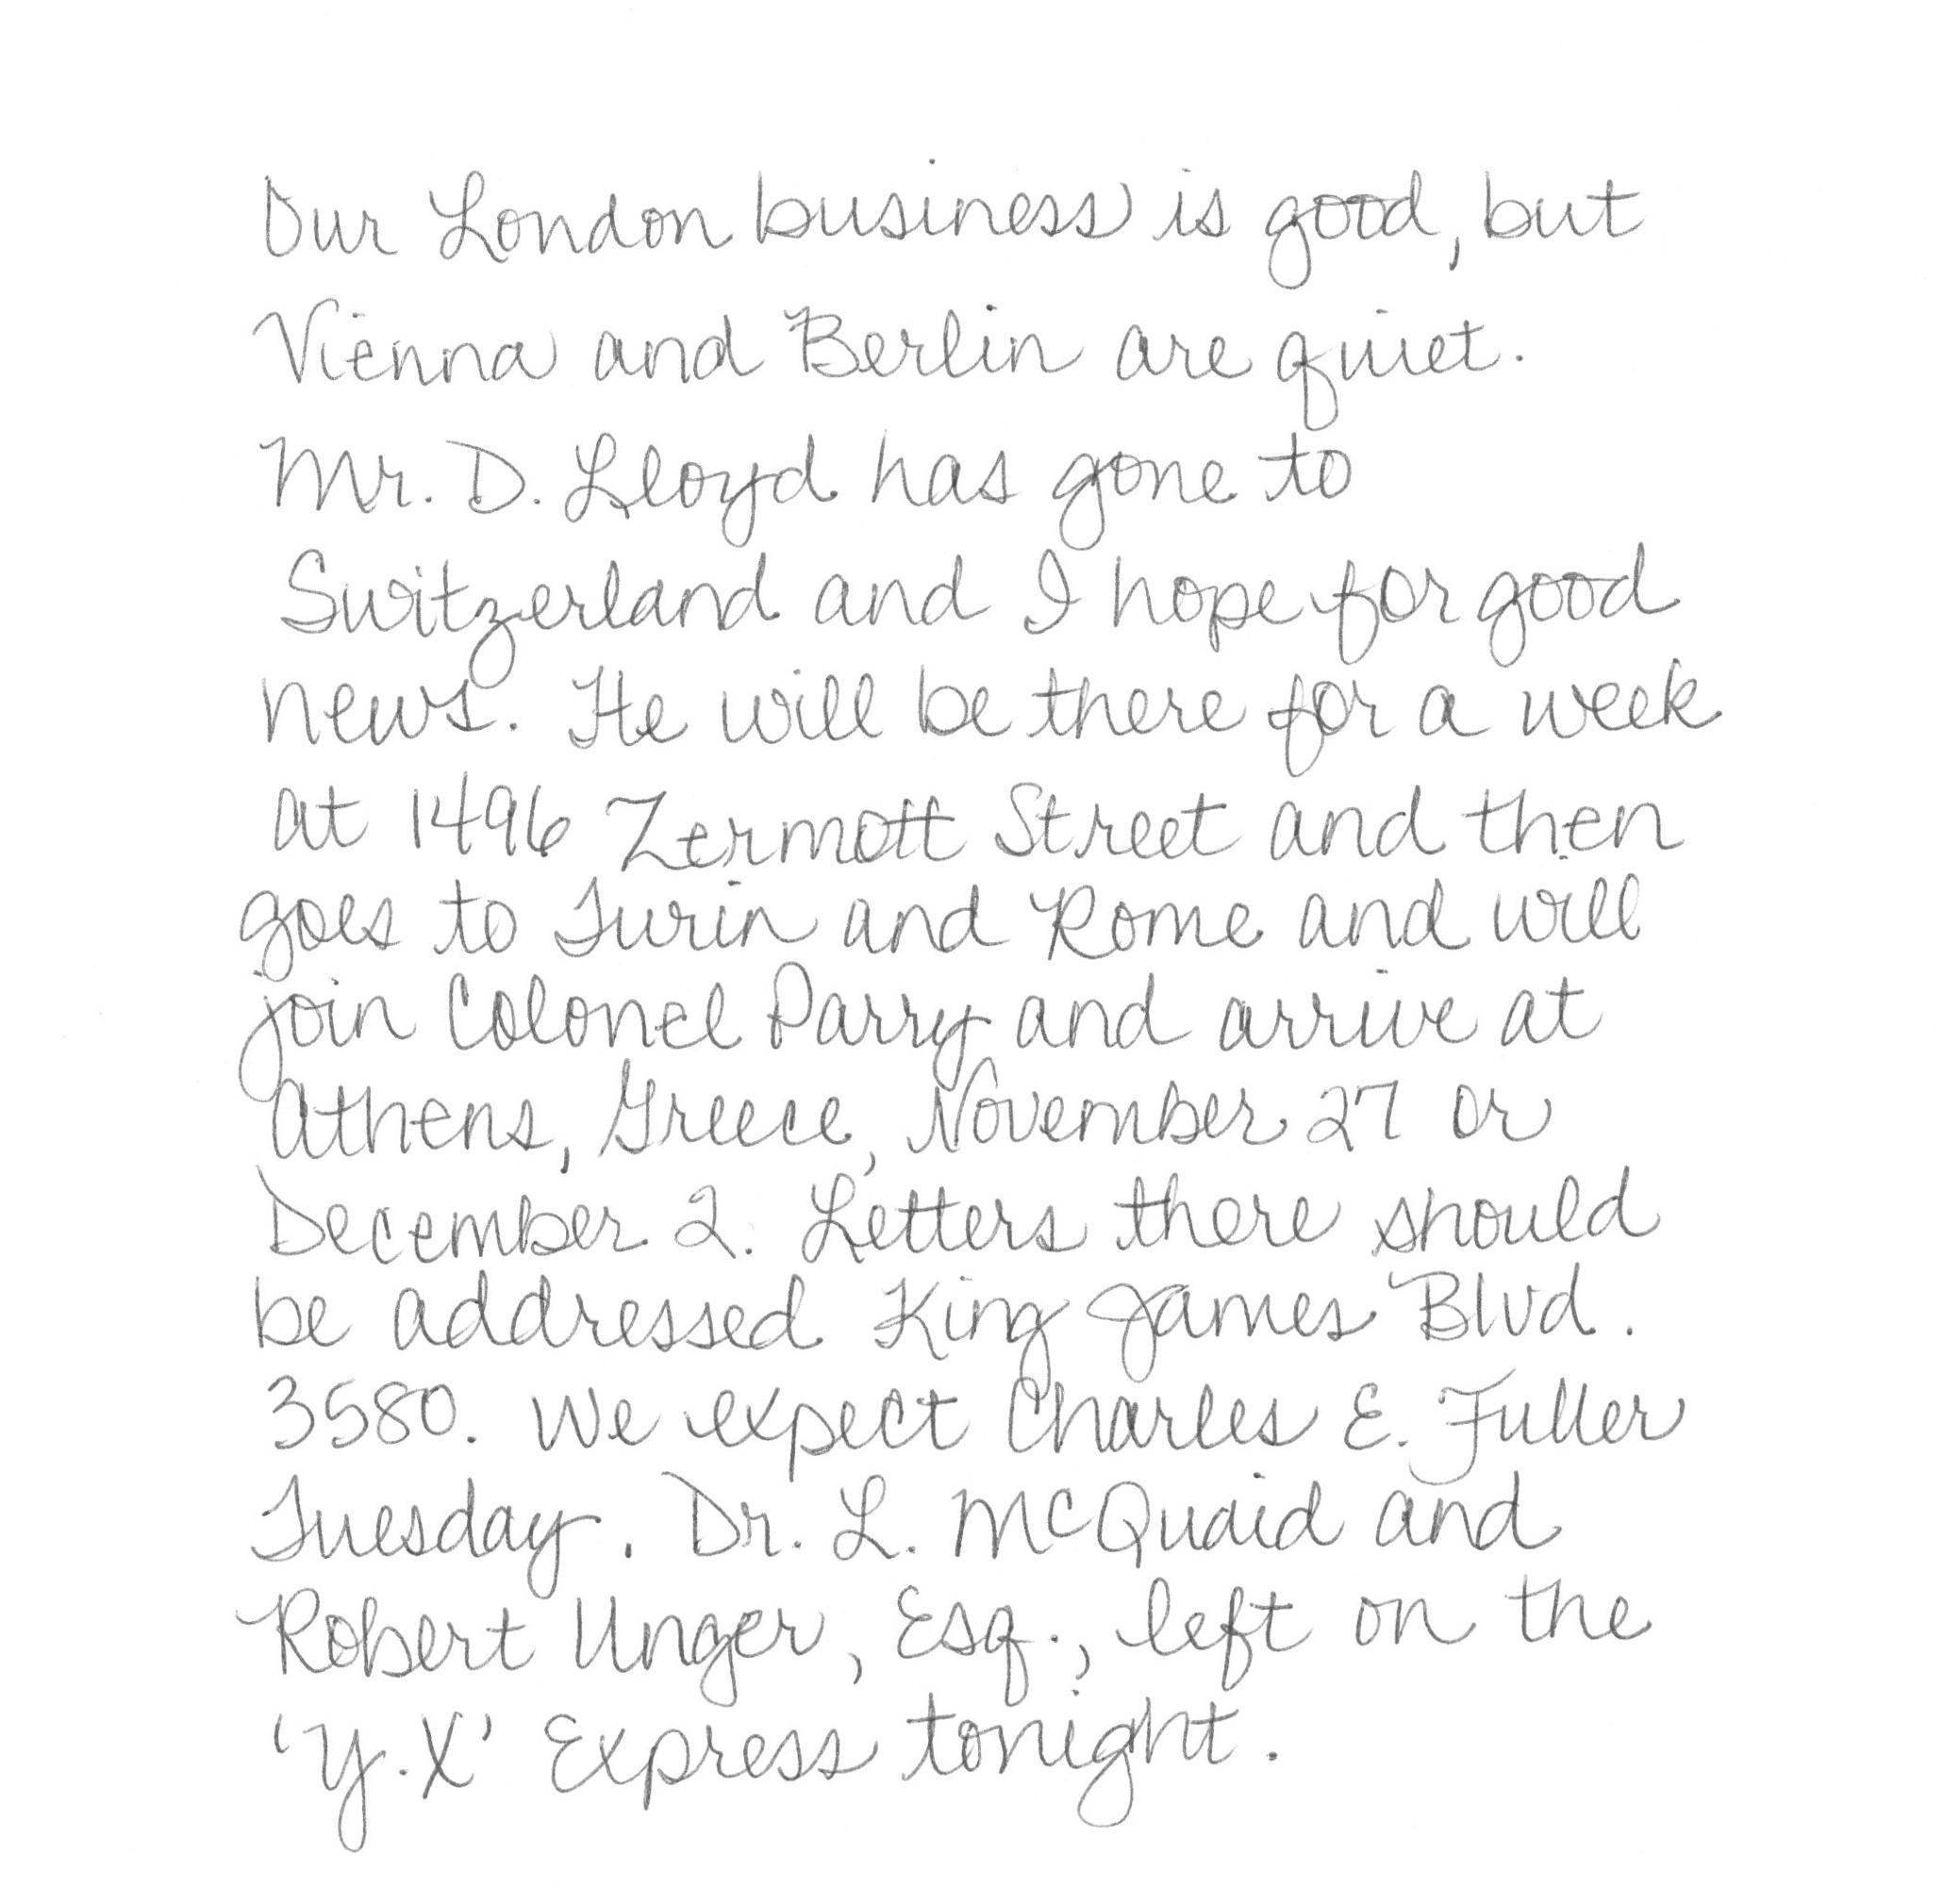 Our London business is good, but
Vienna and Berlin are quiet.
Mr. D. Lloyd has gone to
Switzerland and I hope for good
news. He will be there for a week
at 1496 Zermott Street and then
goes to Turin and Rome and will
join Colonel Parry and arrive at
Athens, Greece, November 27 or
December 2. Letters there should
be addressed King James Blvd.
3580. We expect Charles E. Fuller
Tuesday. Dr. L. McQuaid and
Robert Unger, Esq., left on the
'Y.X' Express tonight.